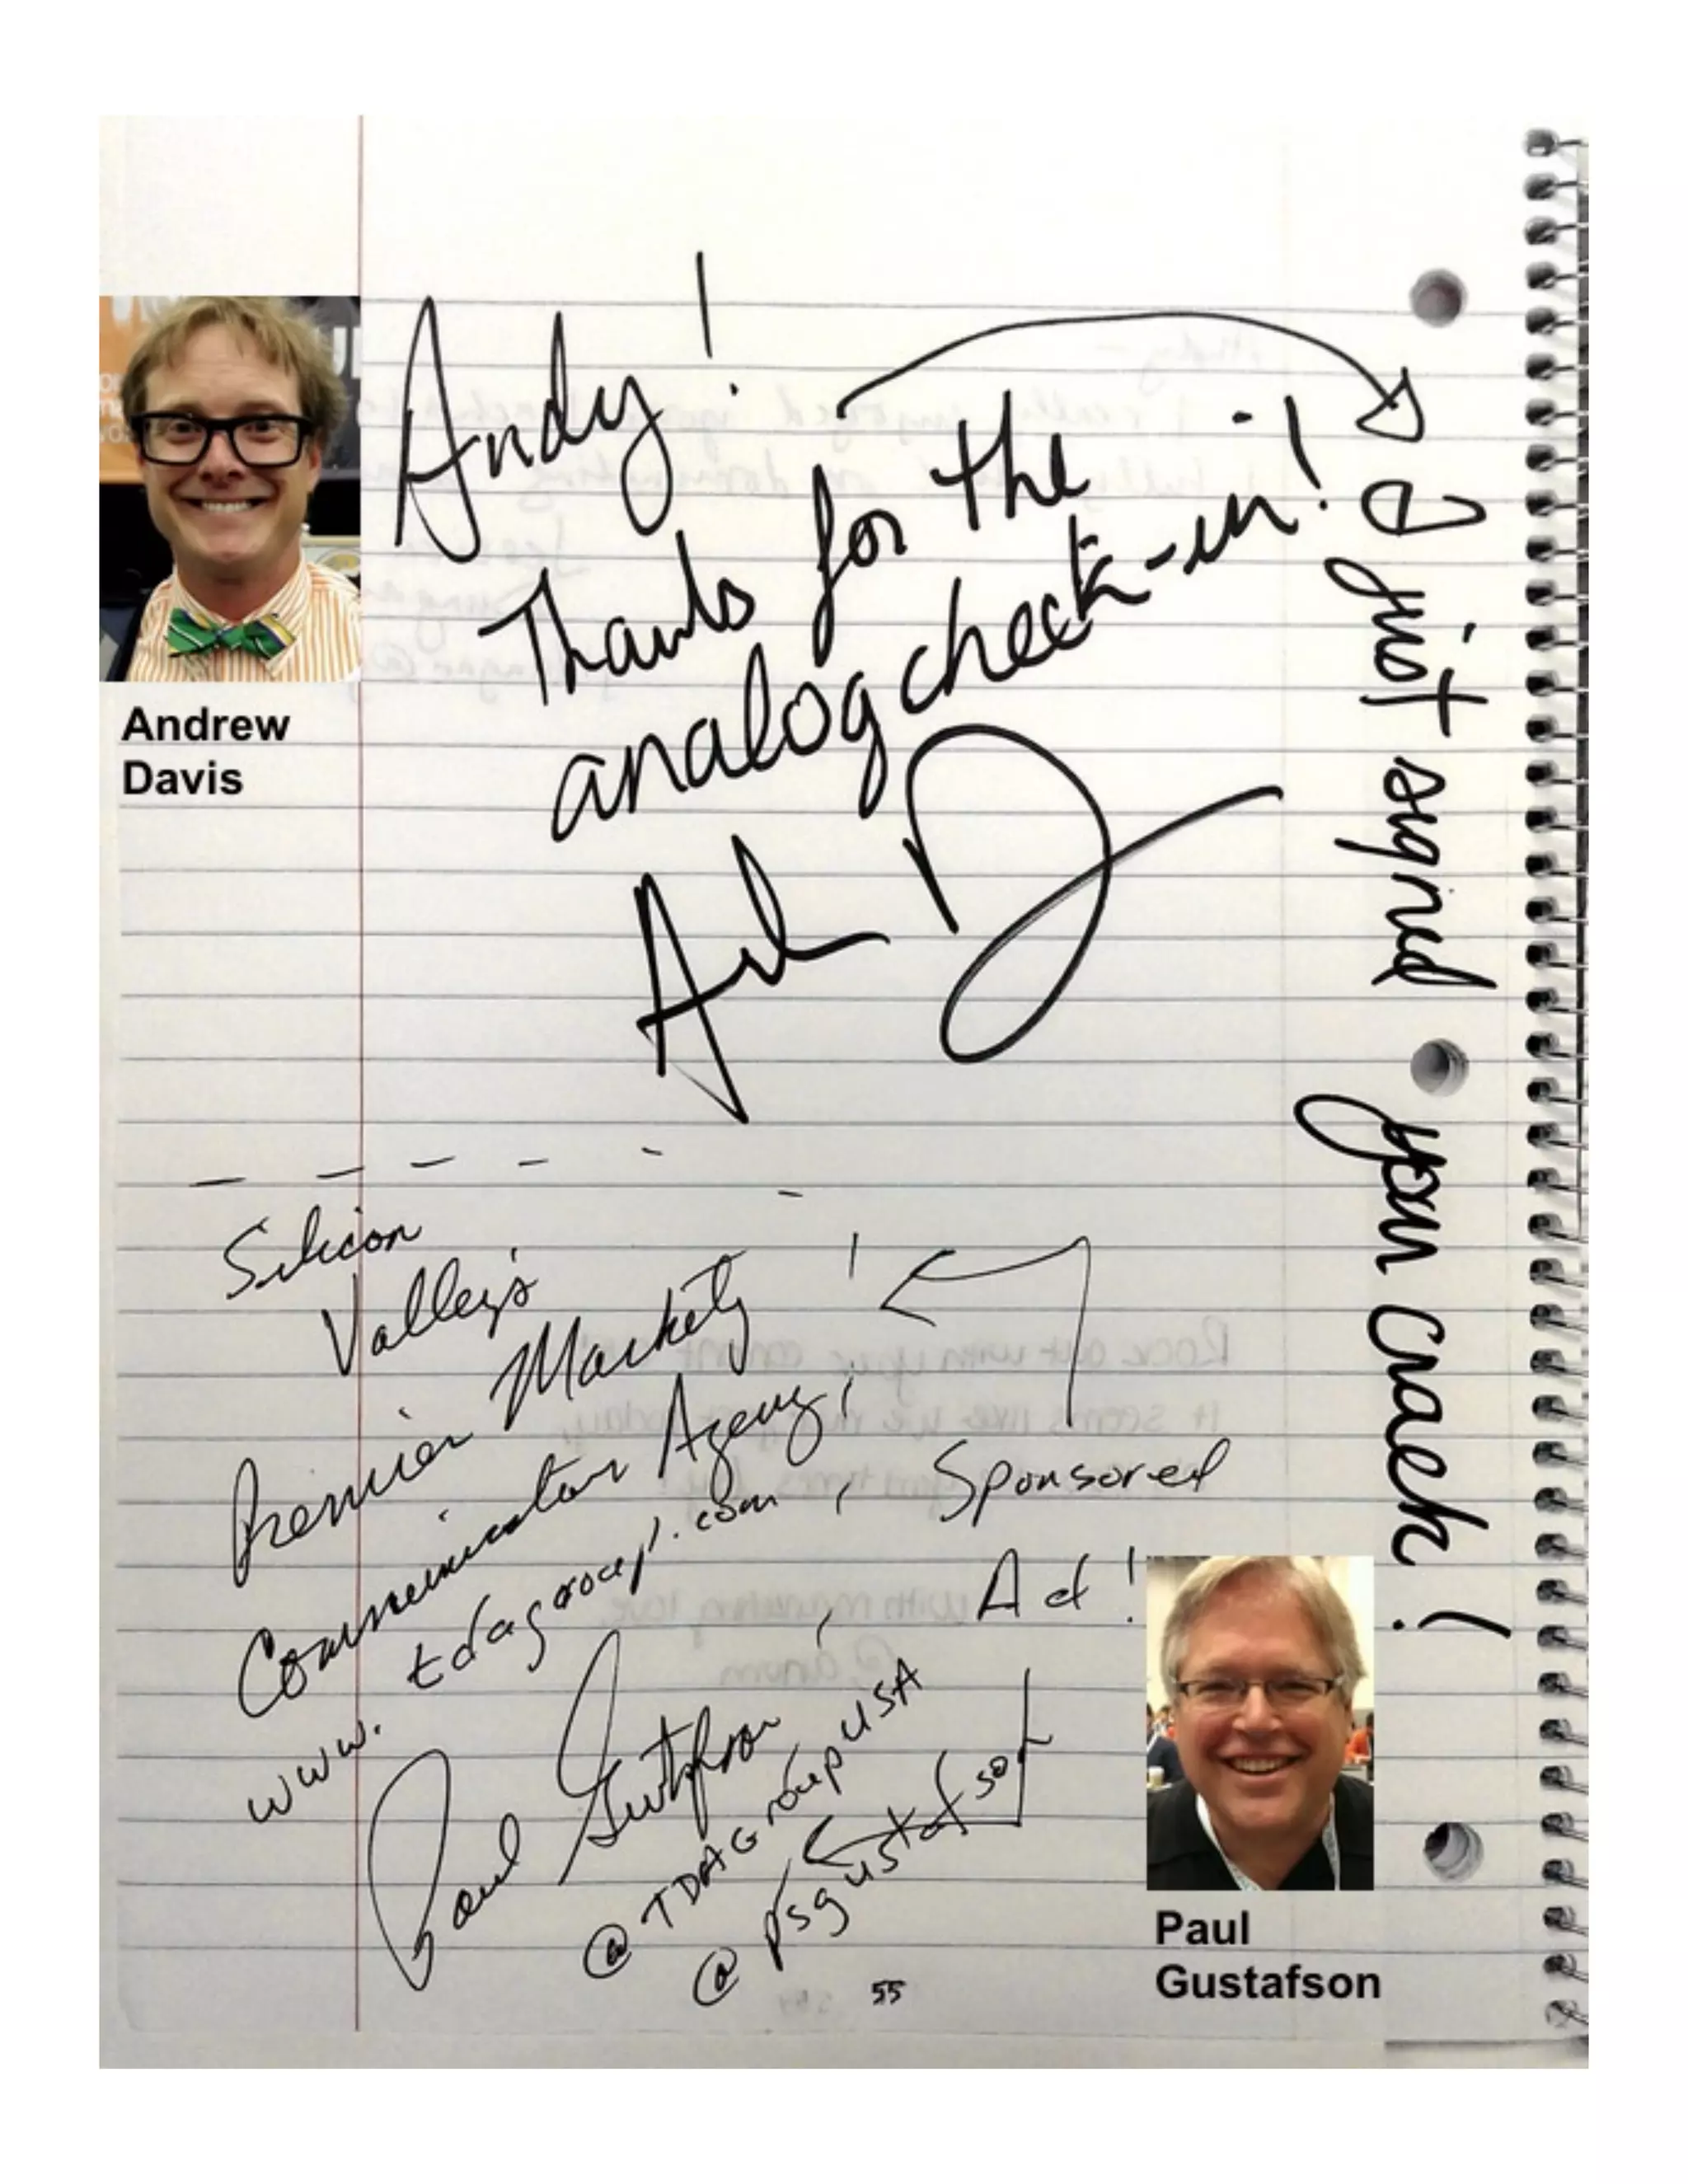 Andy!
Thanks for the
analog check-in!
I just signed your crack!
Andrew
Davis
Silicon
Valley's
Premier Marketg
Communication Agency!
www. tdagroup.com
Sponsored
Ad!
Paul Gustafson
@TDAGroupUSA
@psgustafson
55
Paul
Gustafson